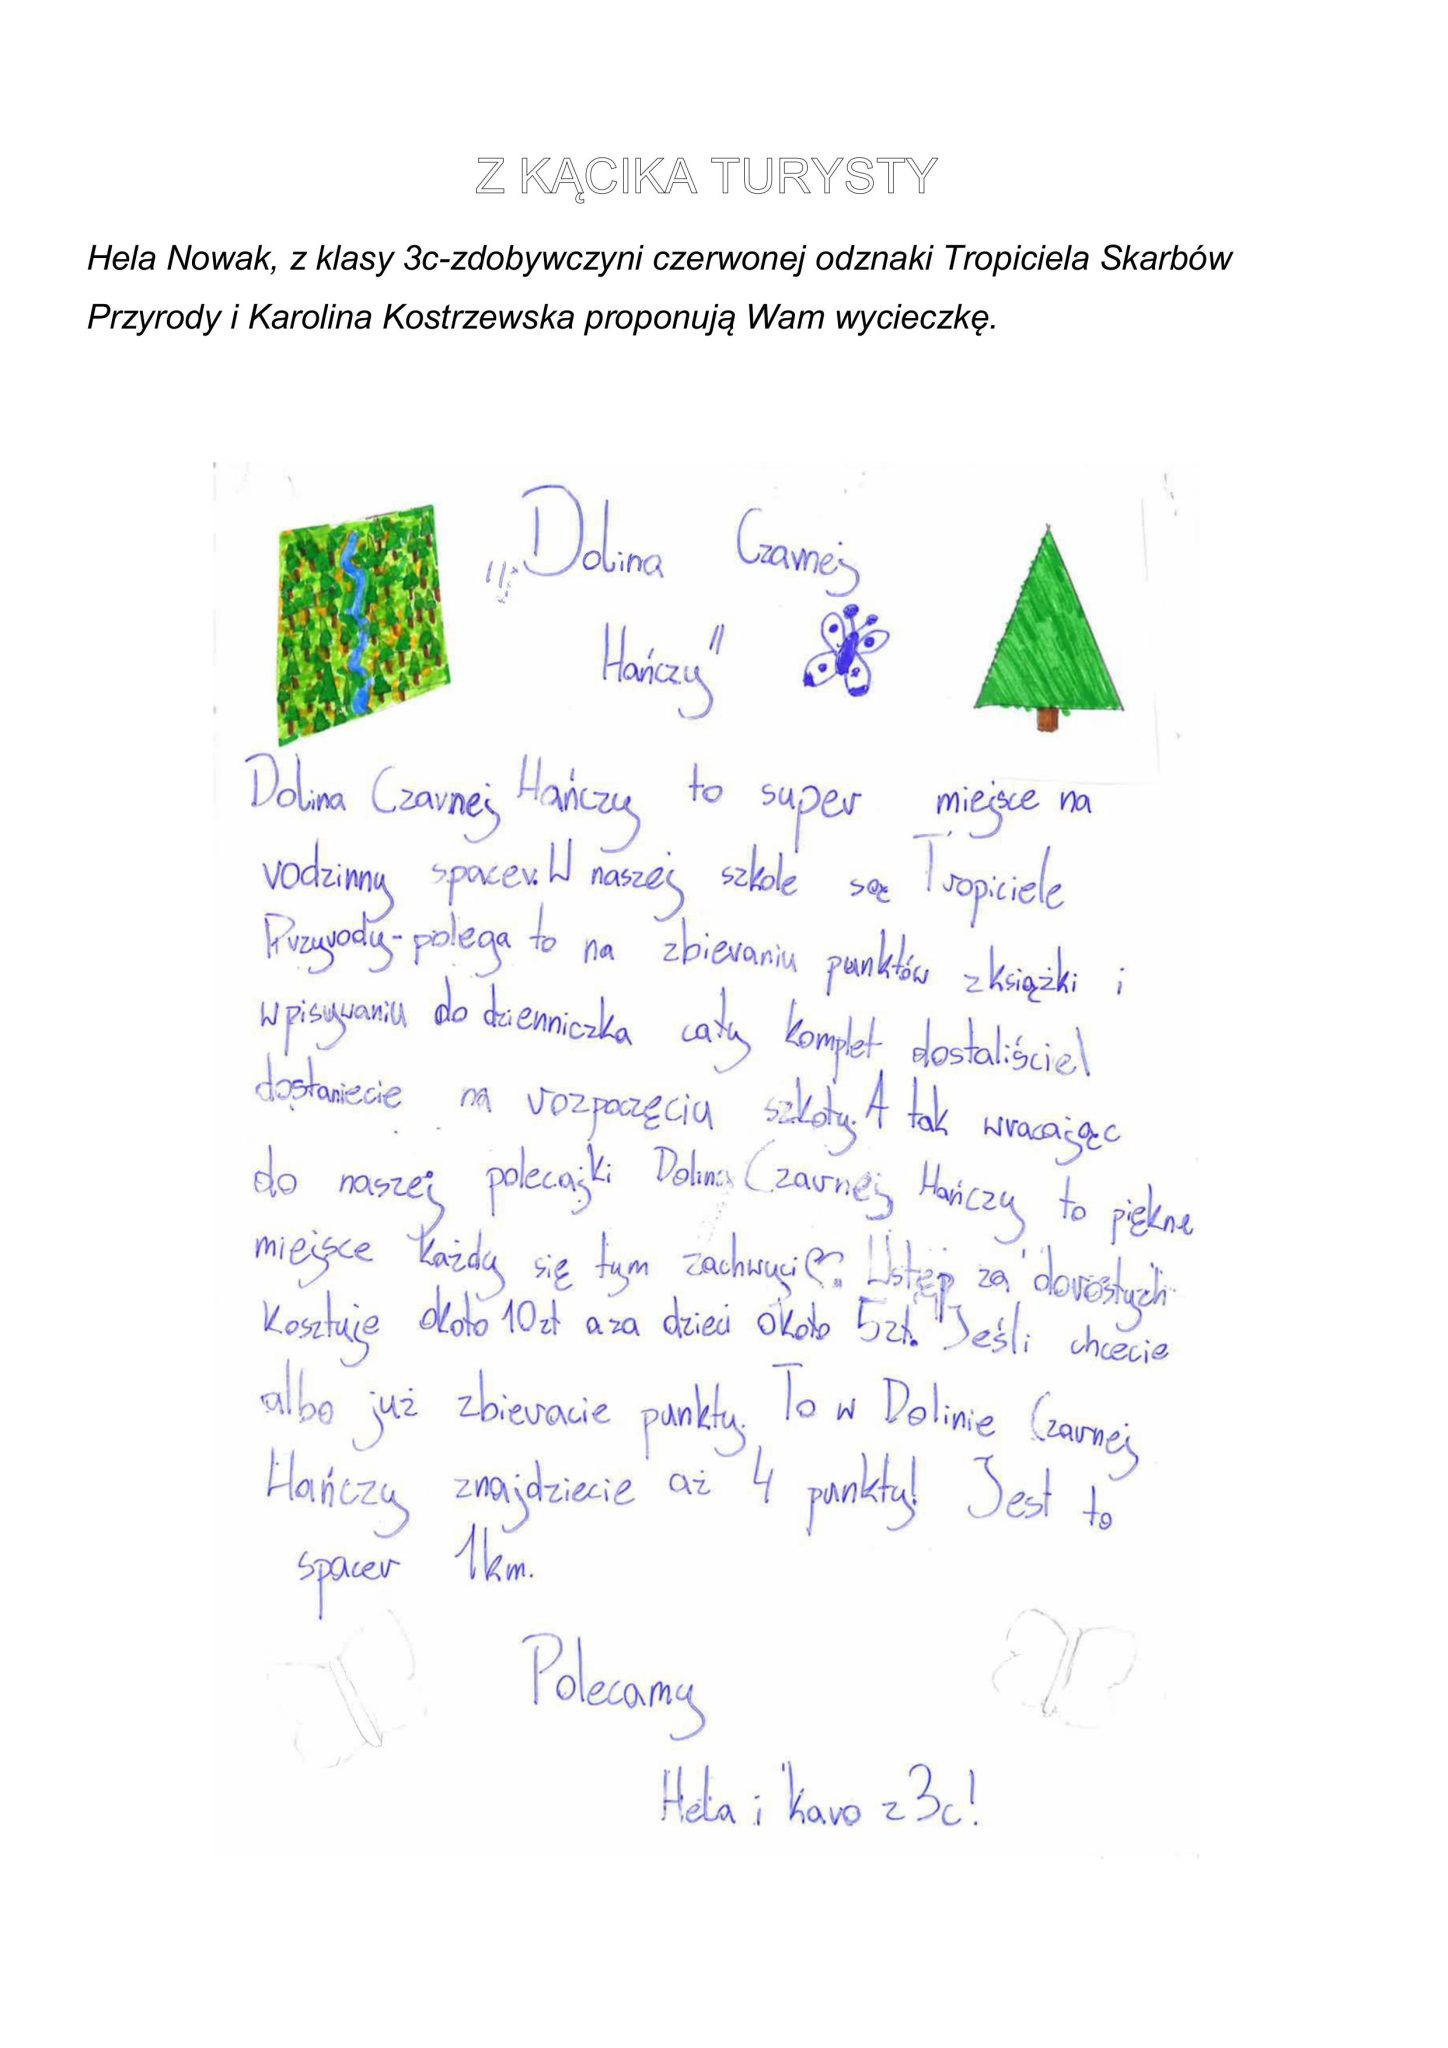 Z KĄCIKA TURYSTY
Hela Nowak, z klasy 3c-zdobywczyni czerwonej odznaki Tropiciela Skarbów
Przyrody i Karolina Kostrzewska proponują Wam wycieczkę.
„Dolina Czarnej
Hańczy"
Dolina Czarnej Hańczy to super miejsce na
rodzinny spacer. W naszej szkole są Tropiciele
Przyrody - polega to na zbieraniu punktów z książki i
wpisywaniu do dzienniczka cały komplet dostaliście\
dostaniecie na rozpoczęciu szkoły. A tak wracając
do naszej polecajki Dolina Czarnej Hańczy to piękne
miejsce każdy się tym zachwyci♡. Wstęp za dorosłych
kosztuje około 10zł a za dzieci około 5zł. Jeśli chcecie
albo już zbieracie punkty. To w Dolinie Czarnej
Hańczy znajdziecie aż 4 punkty! Jest to
spacer 1km.
Polecamy
Hela i Karo z 3c!